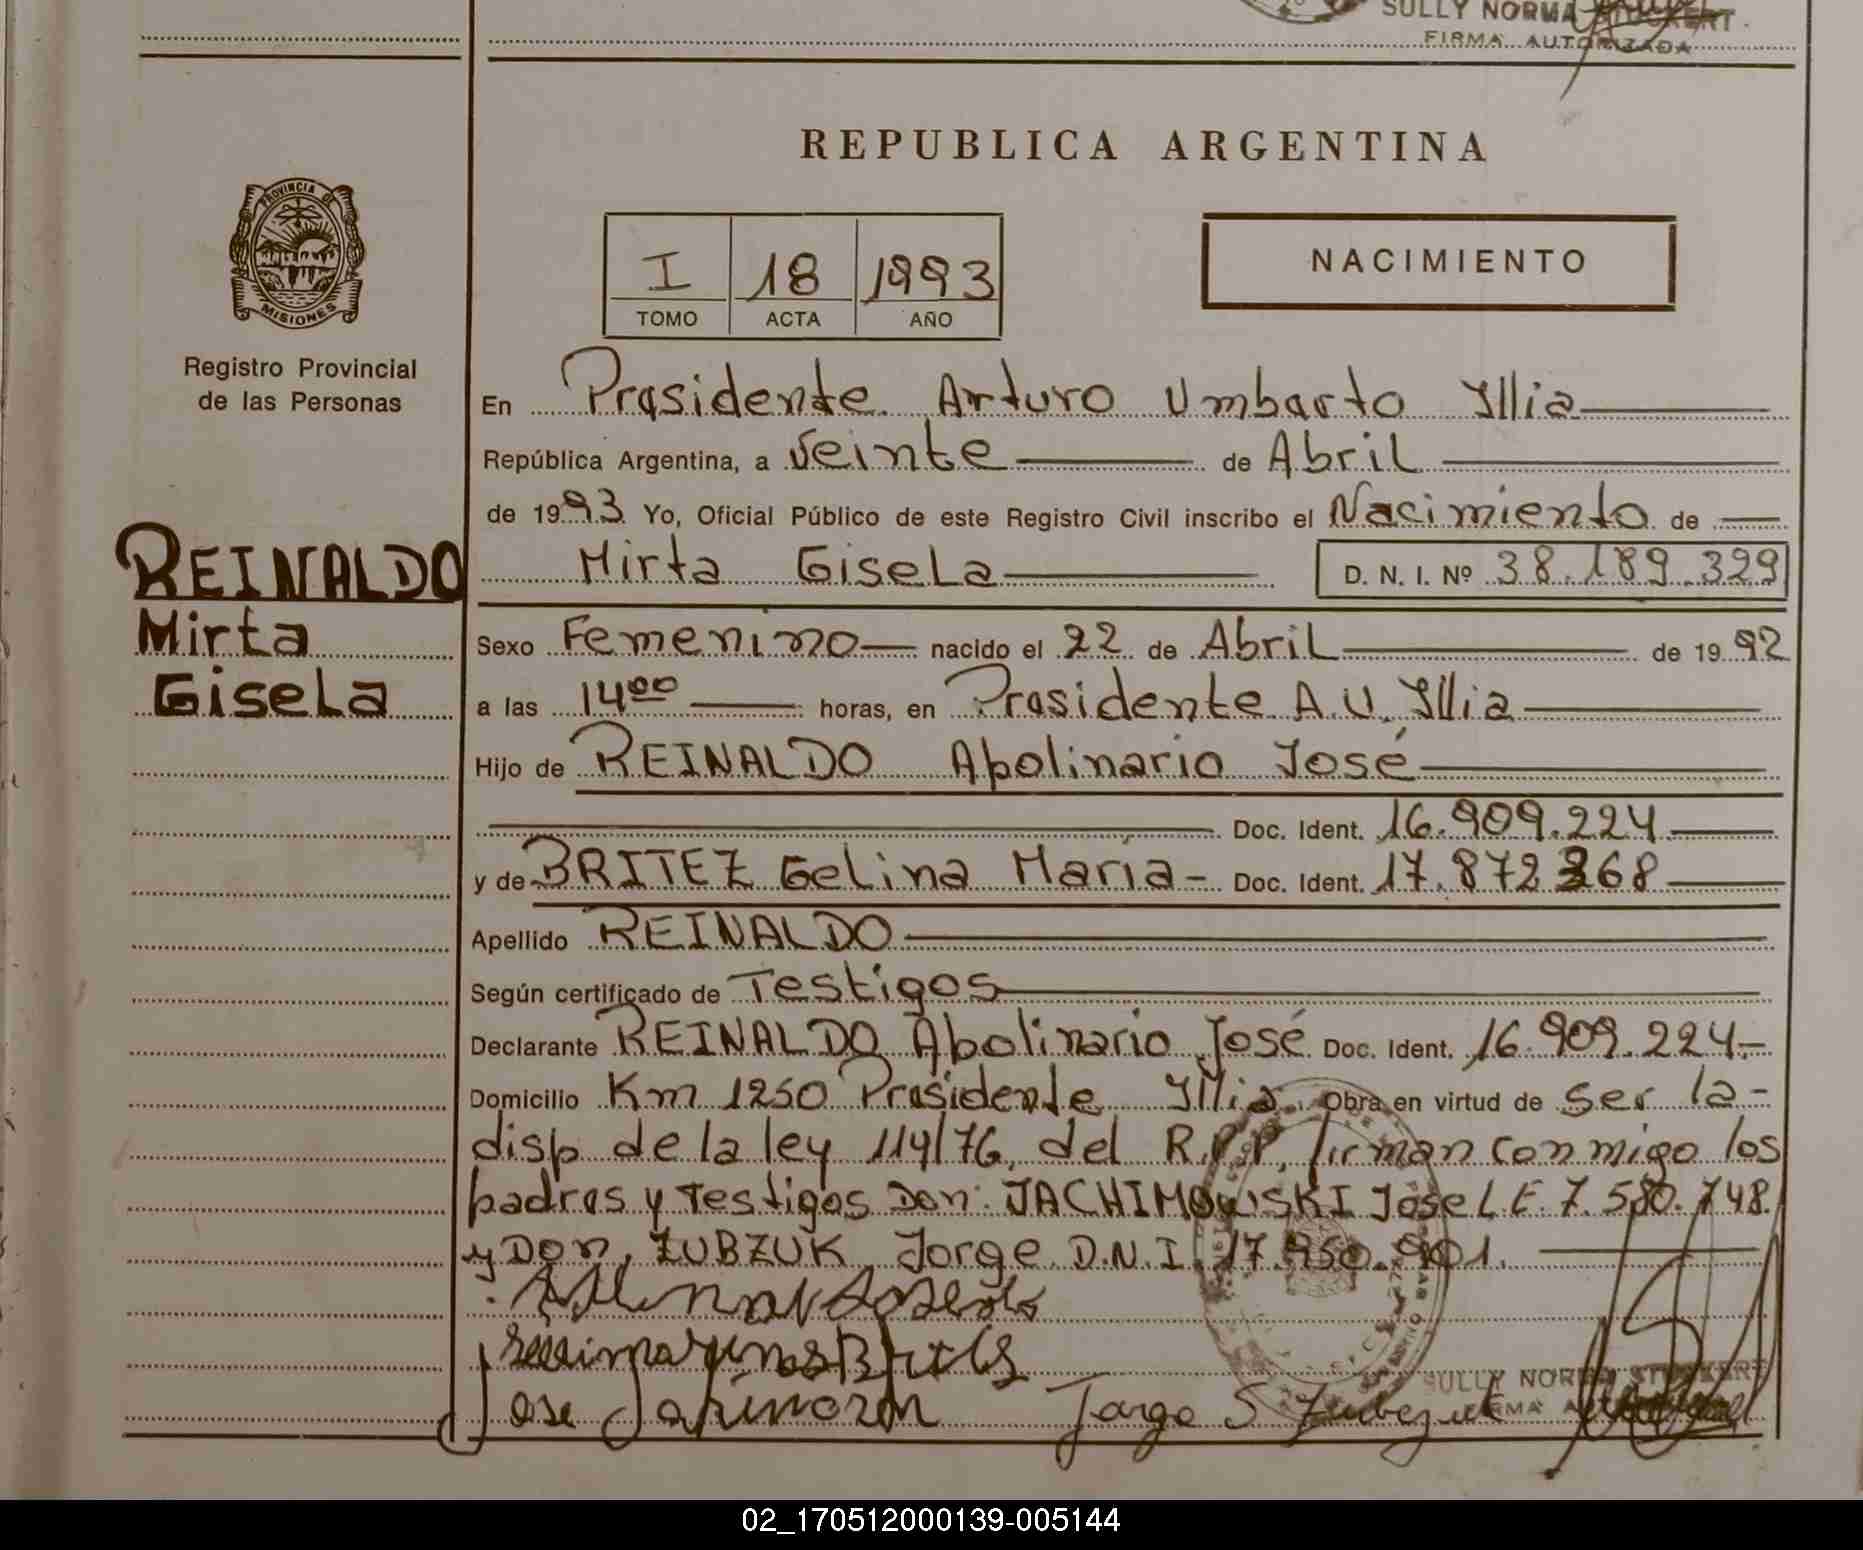 SULLY NORMA STOCKERT
FIRMA AUTORIZADA
REPUBLICA ARGENTINA
PROVINCIA DE
MISIONES
Registro Provincial
de las Personas
I 18 1993
TOMO ACTA AÑO
NACIMIENTO
En Presidente Arturo Umberto Illia
República Argentina, a veinte de Abril
de 1993 Yo, Oficial Público de este Registro Civil inscribo el Nacimiento de
Mirta Gisela D. N. I. Nº 38.189.329
REINALDO
Mirta
Gisela
Sexo Femenino nacido el 22 de Abril de 1992
a las 14 00 horas, en Presidente A.U. Illia
Hijo de REINALDO Apolinario José
Doc. Ident. 16.909.224
y de BRITEZ Gelina María - Doc. Ident. 17.872 368
Apellido REINALDO
Según certificado de Testigos
Declarante REINALDO Apolinario José Doc. Ident. 16.909.224.-
Domicilio Km 1250 Presidente Illia. Obra en virtud de ser la -
disp de la ley 114/76, del R.P.P. firman conmigo los
padres y Testigos Don: JACHIMOWSKI Jose L E. 7. 580. 748.
y Don, ZUBZUK Jorge D.N.I. 17.950.901.
Jose
Jorge S
SULLY NORMA STOCKERT
FIRMA
02_170512000139-005144